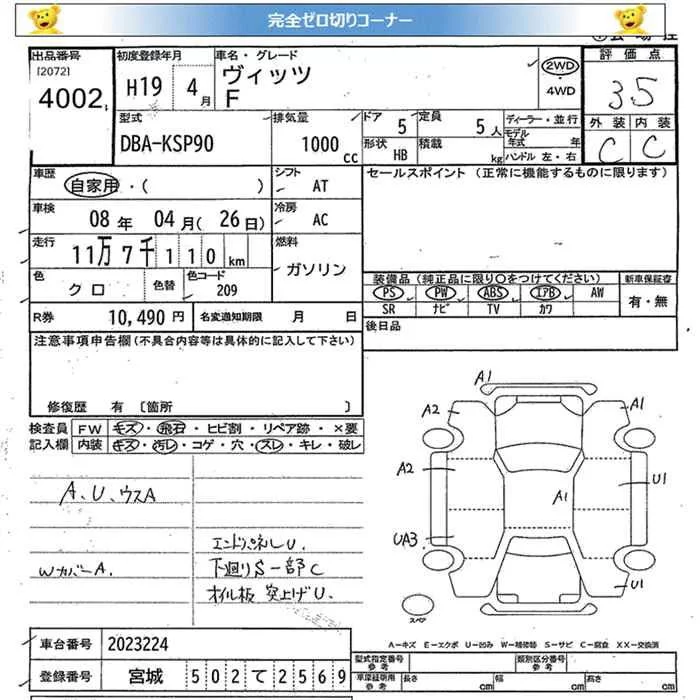 完全ゼロ切りコーナー
出品番号
[2072]
4002
初度登録年月
H19 4月
車名・グレード
ヴィッツ
F
2WD
・
4WD
評価点
3.5
外装 内装
C C
型式
DBA-KSP90
排気量
1000
cc
ドア 5
定員 5人
形状 HB
積載 kg
ディーラー・並行
モデル
年式 年
ハンドル 左・右
車歴
自家用・( )
シフト
AT
セールスポイント (正常に機能するものに限ります)
車検
08年 04月(26日)
冷房
AC
走行
11万7千110km
燃料
ガソリン
色
クロ
色替
色コード
209
装備品 (純正品に限り○をつけてください)
新車保証書
PS PW ABS エアB AW
有・無
SR ナビ TV カワ
R券 10,490円
名変通知期限 月 日
後日品
注意事項申告欄(不具合内容等は具体的に記入して下さい)
修復歴 有 〔箇所 〕
検査員 FW キズ・飛石・ヒビ割・リペア跡・×要
記入欄 内装 キズ・汚レ・コゲ・穴・スレ・キレ・破レ
A、U、ウスA
エンドパネルU
Wカバー A.
下廻りS一部C
オイル板 突上げU.
A1
A2
A1
A2
A1
U1
UA3
U1
スペア
A=キズ E=エクボ U=凹み W=補修跡 S=サビ C=腐食 XX=交換済
車台番号 2023224
登録番号 宮城 502て2569
型式指定番号
参考
類別区分番号
参考
車庫証明用
参考
長さ cm 幅 cm 高さ cm